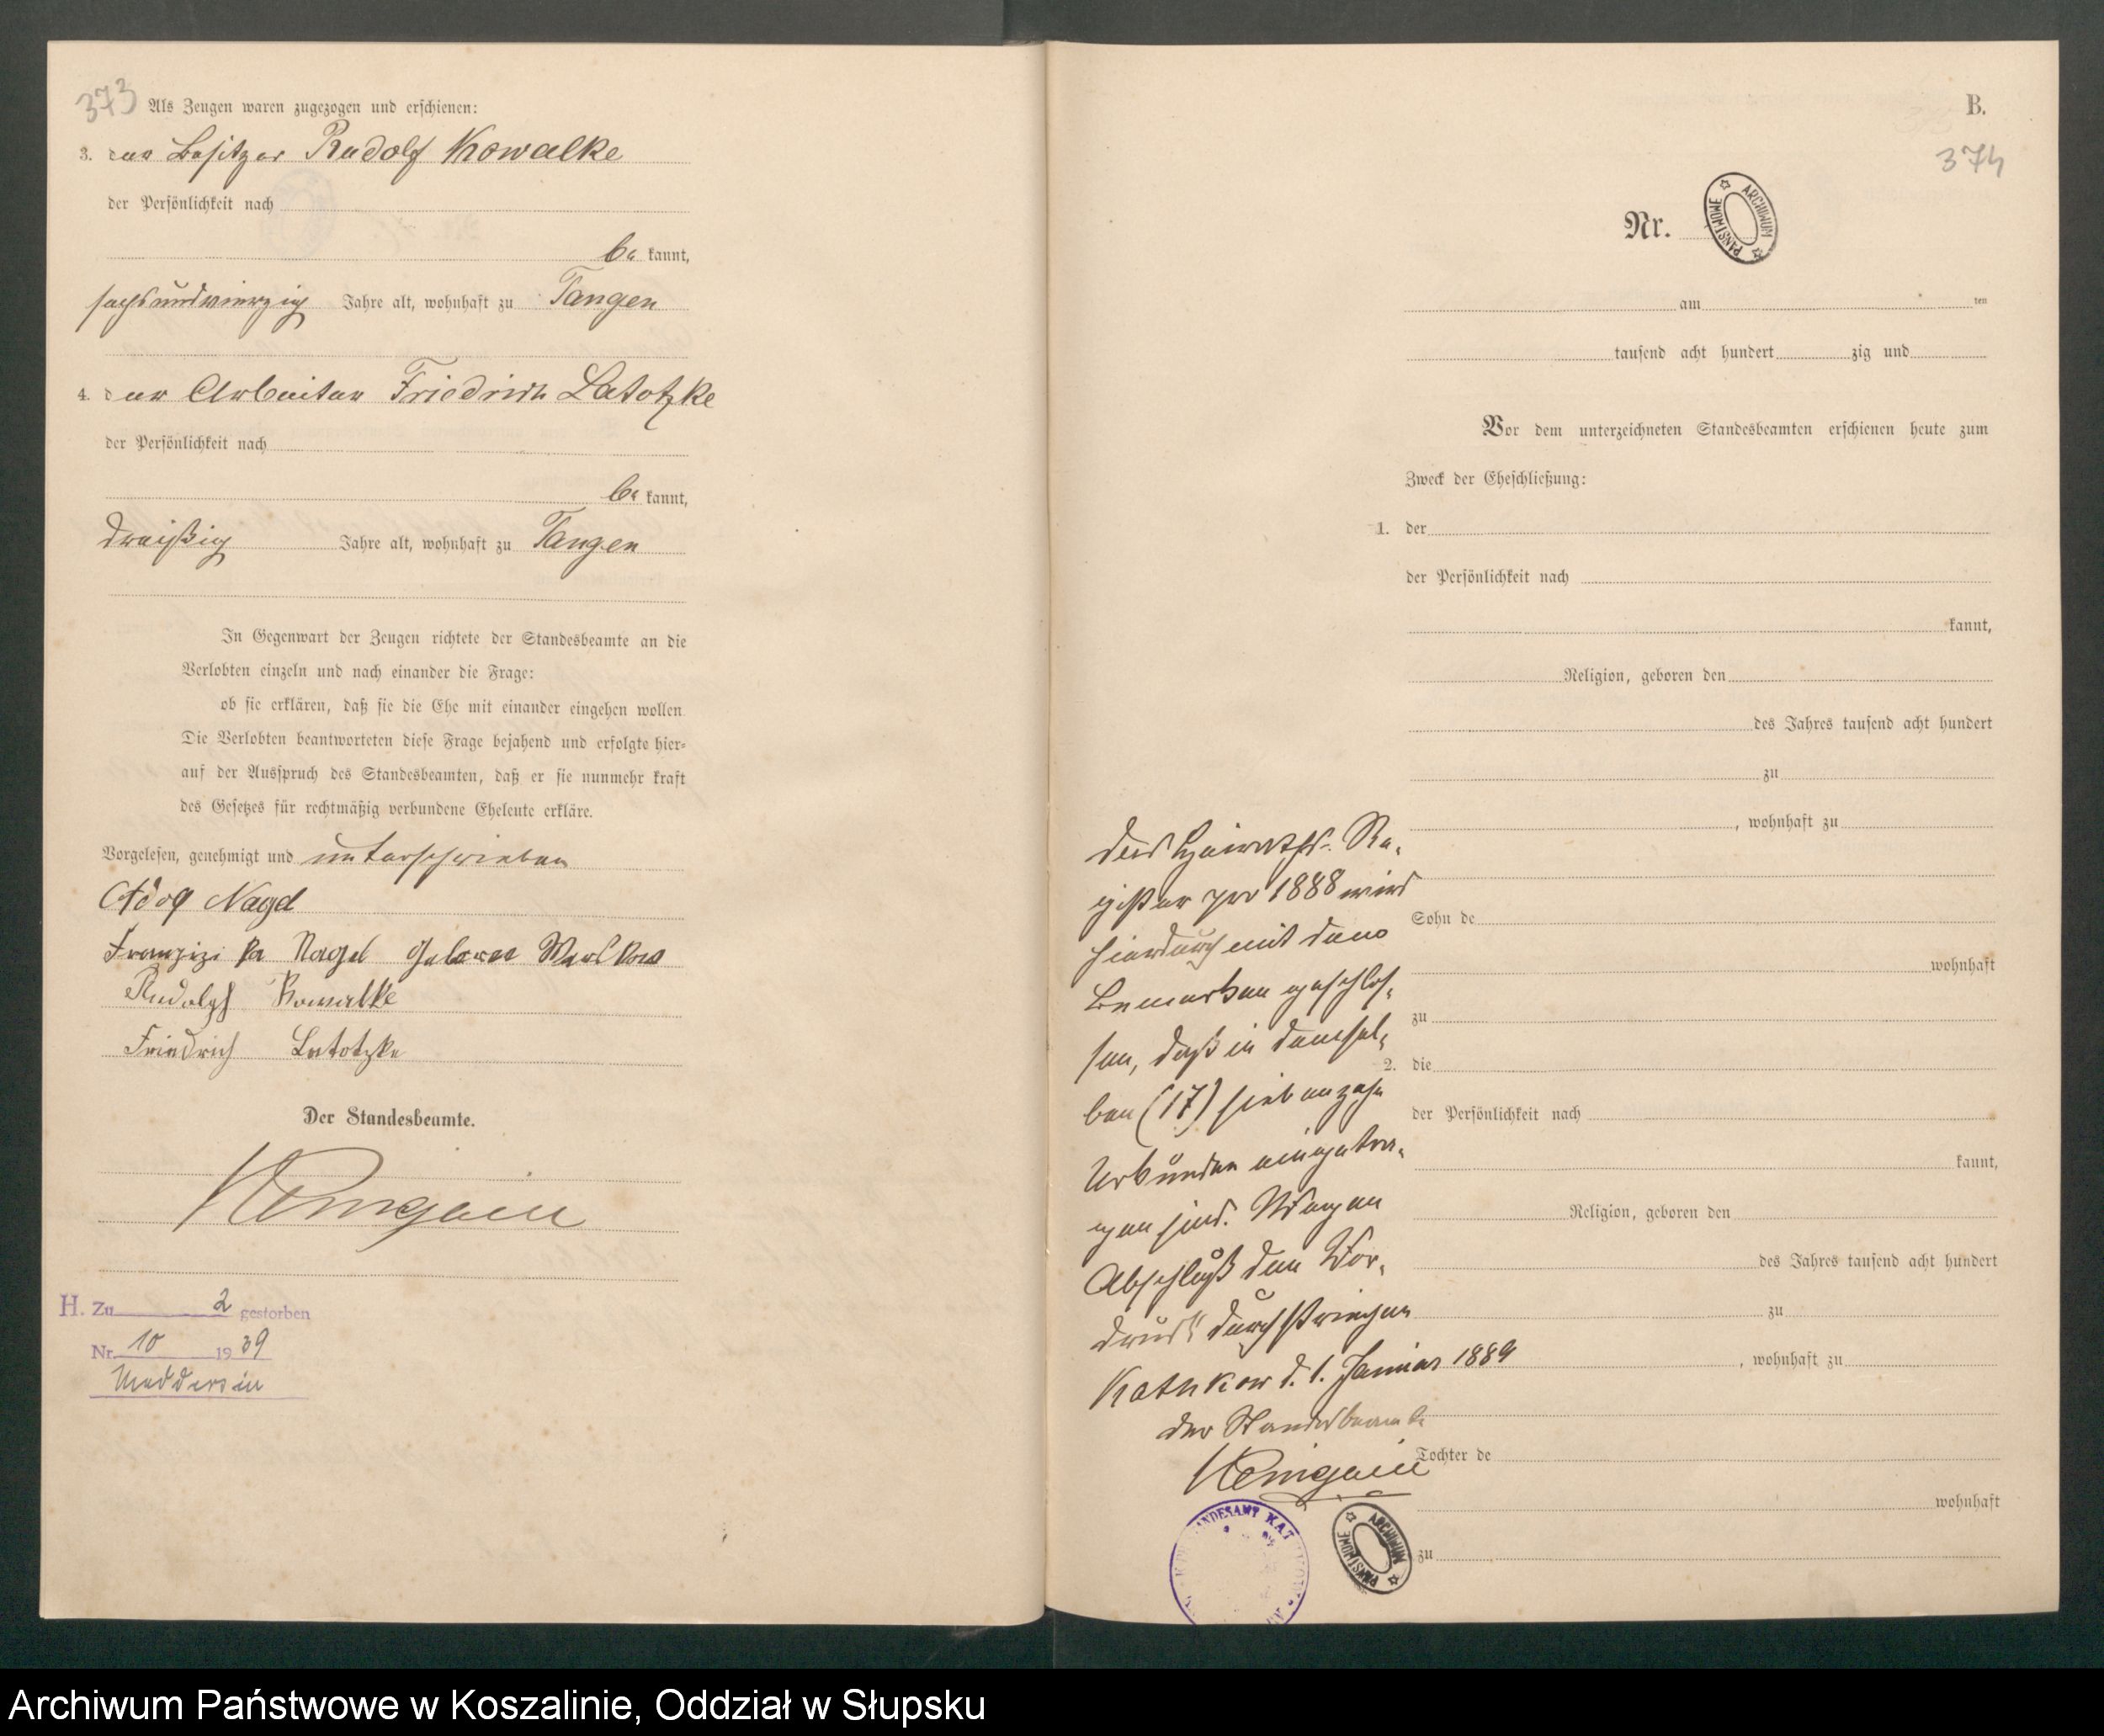 373
Als Zeugen waren zugezogen und erschienen:
3. der Besitzer Rudolf Kowalke
der Persönlichkeit nach
be kannt,
sechsundvierzig Jahre alt, wohnhaft zu Tangen
4. der Arbeiter Friedrich Latotzke
der Persönlichkeit nach
be kannt,
dreißig Jahre alt, wohnhaft zu Tangen
In Gegenwart der Zeugen richtete der Standesbeamte an die
Verlobten einzeln und nach einander die Frage:
ob sie erklären, daß sie die Ehe mit einander eingehen wollen.
Die Verlobten beantworteten diese Frage bejahend und erfolgte hier=
auf der Ausspruch des Standesbeamten, daß er sie nunmehr kraft
des Gesetzes für rechtmäßig verbundene Eheleute erkläre.
Vorgelesen, genehmigt und unterschrieben
Nagel
Nagel
Rudolph Kowalke
Friedrich Latotzke
Der Standesbeamte.
H. Zu 2 gestorben
Nr. 10 1939
Muddersin
B.
374
Nr.
ARCHIWUM PAŃSTWOWE
am ten
tausend acht hundert zig und
Vor dem unterzeichneten Standesbeamten erschienen heute zum
Zweck der Eheschließung:
1. der
der Persönlichkeit nach
kannt,
Religion, geboren den
des Jahres tausend acht hundert
zu
, wohnhaft zu
Sohn de
wohnhaft
zu
2. die
der Persönlichkeit nach
kannt,
Religion, geboren den
des Jahres tausend acht hundert
zu
, wohnhaft zu
Tochter de
wohnhaft
zu
Das Heiraths-Re-
gister pro 1888 wird
hierdurch mit dem
Bemerken geschlos-
sen, daß in demsel-
ben (17) siebenzehn
Urkunden eingetra-
gen sind. Wegen
Abschluß den Vor-
druck durchstrichen
Kathkow d. 1. Januar 1889
Der Standesbeamte
STANDESAMT KAT
ARCHIWUM PAŃSTWOWE
Archiwum Państwowe w Koszalinie, Oddział w Słupsku